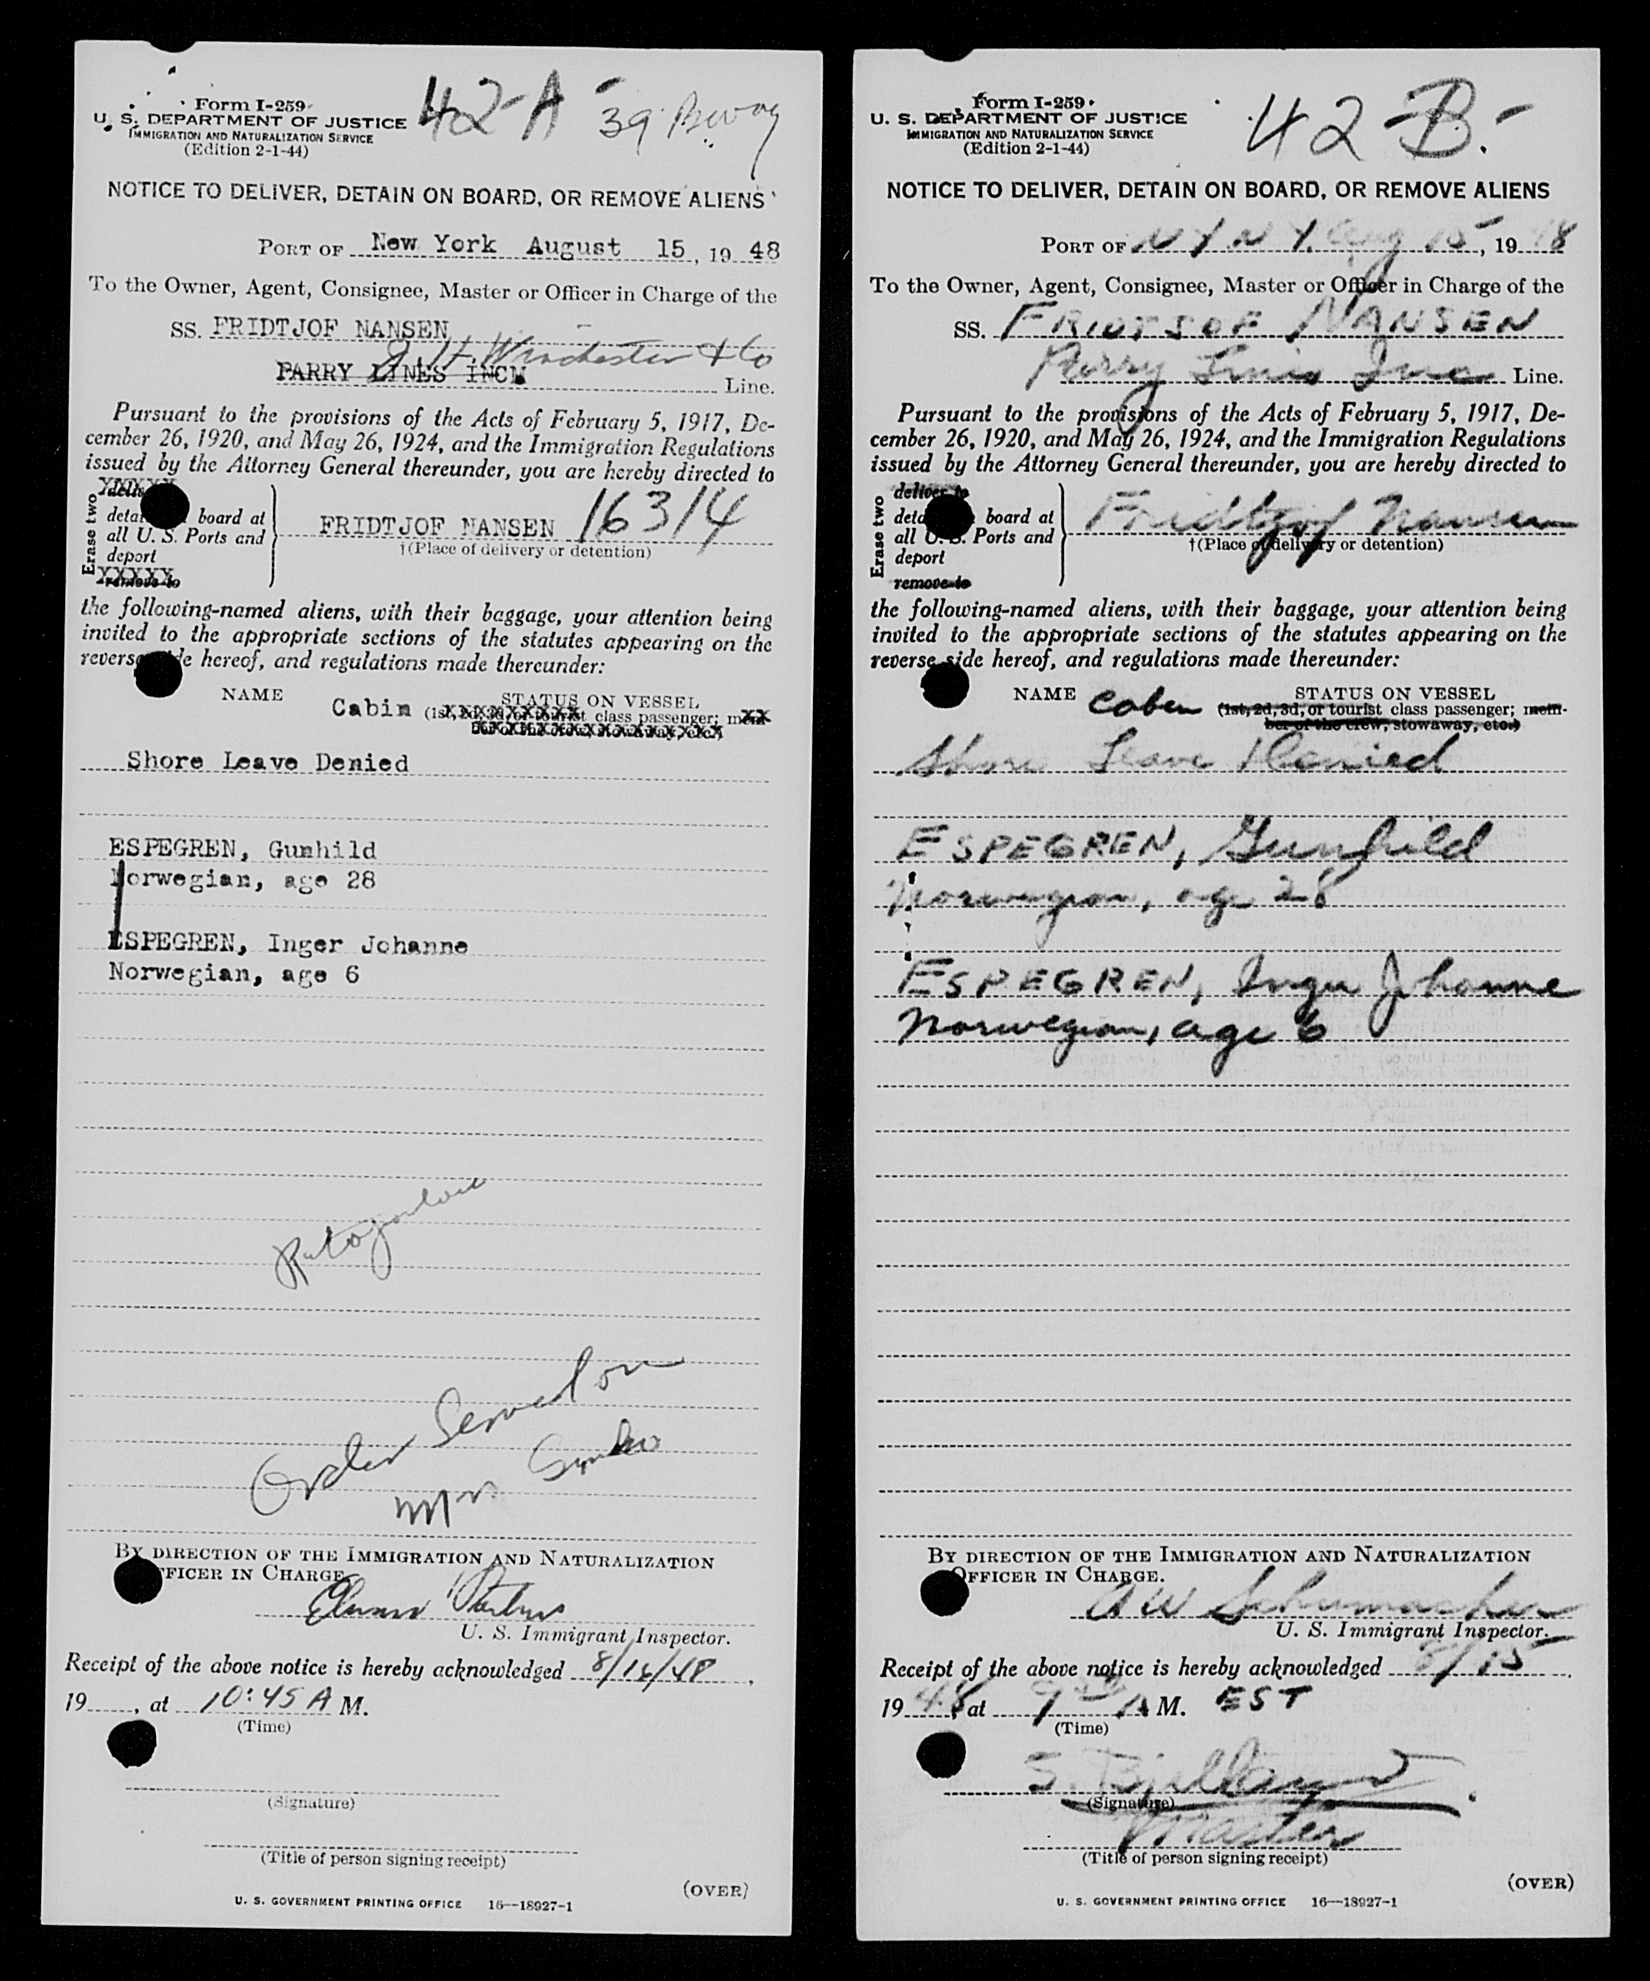 Form I-259
U. S. DEPARTMENT OF JUSTICE
IMMIGRATION AND NATURALIZATION SERVICE
(Edition 2-1-44)
42-A - 39 Bway
NOTICE TO DELIVER, DETAIN ON BOARD, OR REMOVE ALIENS
PORT OF New York August 15, 1948
To the Owner, Agent, Consignee, Master or Officer in Charge of the
SS. FRIDTJOF NANSEN
J. H. Winchester & Co
PARRY LINES INCM Line.
Pursuant to the provisions of the Acts of February 5, 1917, De-
cember 26, 1920, and May 26, 1924, and the Immigration Regulations
issued by the Attorney General thereunder, you are hereby directed to
Erase two
board at
all U. S. Ports and
deport
remove to
FRIDTJOF NANSEN 16314
†(Place of delivery or detention)
the following-named aliens, with their baggage, your attention being
invited to the appropriate sections of the statutes appearing on the
reverse side hereof, and regulations made thereunder:
NAME Cabin STATUS ON VESSEL
(1st, 2d, 3d, or tourist class passenger; mem-
ber of the crew, stowaway, etc.)
Shore Leave Denied
ESPEGREN, Gunhild
Norwegian, age 28
ESPEGREN, Inger Johanne
Norwegian, age 6
Order Served on
Mr.
BY DIRECTION OF THE IMMIGRATION AND NATURALIZATION
OFFICER IN CHARGE
U. S. Immigrant Inspector.
Receipt of the above notice is hereby acknowledged 8/16/48,
19, at 10:45 A M.
(Time)
(Signature)
(Title of person signing receipt)
(OVER)
U. S. GOVERNMENT PRINTING OFFICE 16—18927-1
Form I-259
U. S. DEPARTMENT OF JUSTICE
IMMIGRATION AND NATURALIZATION SERVICE
(Edition 2-1-44)
42-B-
NOTICE TO DELIVER, DETAIN ON BOARD, OR REMOVE ALIENS
PORT OF N Y N Y. Aug 15, 1948
To the Owner, Agent, Consignee, Master or Officer in Charge of the
SS. FRIDTJOF NANSEN
Parry Lines Inc Line.
Pursuant to the provisions of the Acts of February 5, 1917, De-
cember 26, 1920, and May 26, 1924, and the Immigration Regulations
issued by the Attorney General thereunder, you are hereby directed to
Erase two
deliver to
board at
all U. S. Ports and
deport
remove to
Fridtjof Nansen
†(Place of delivery or detention)
the following-named aliens, with their baggage, your attention being
invited to the appropriate sections of the statutes appearing on the
reverse side hereof, and regulations made thereunder:
NAME Cabin STATUS ON VESSEL
(1st, 2d, 3d, or tourist class passenger; mem-
ber of the crew, stowaway, etc.)
Shore Leave Denied
ESPEGREN, Gunhild
Norwegian, age 28
ESPEGREN, Inger Johanne
Norwegian, age 6
BY DIRECTION OF THE IMMIGRATION AND NATURALIZATION
OFFICER IN CHARGE.
A W Schumacher
U. S. Immigrant Inspector.
Receipt of the above notice is hereby acknowledged 8/15,
1948, at 9 A M. EST
(Time)
(Signature)
Master
(Title of person signing receipt)
(OVER)
U. S. GOVERNMENT PRINTING OFFICE 16—18927-1